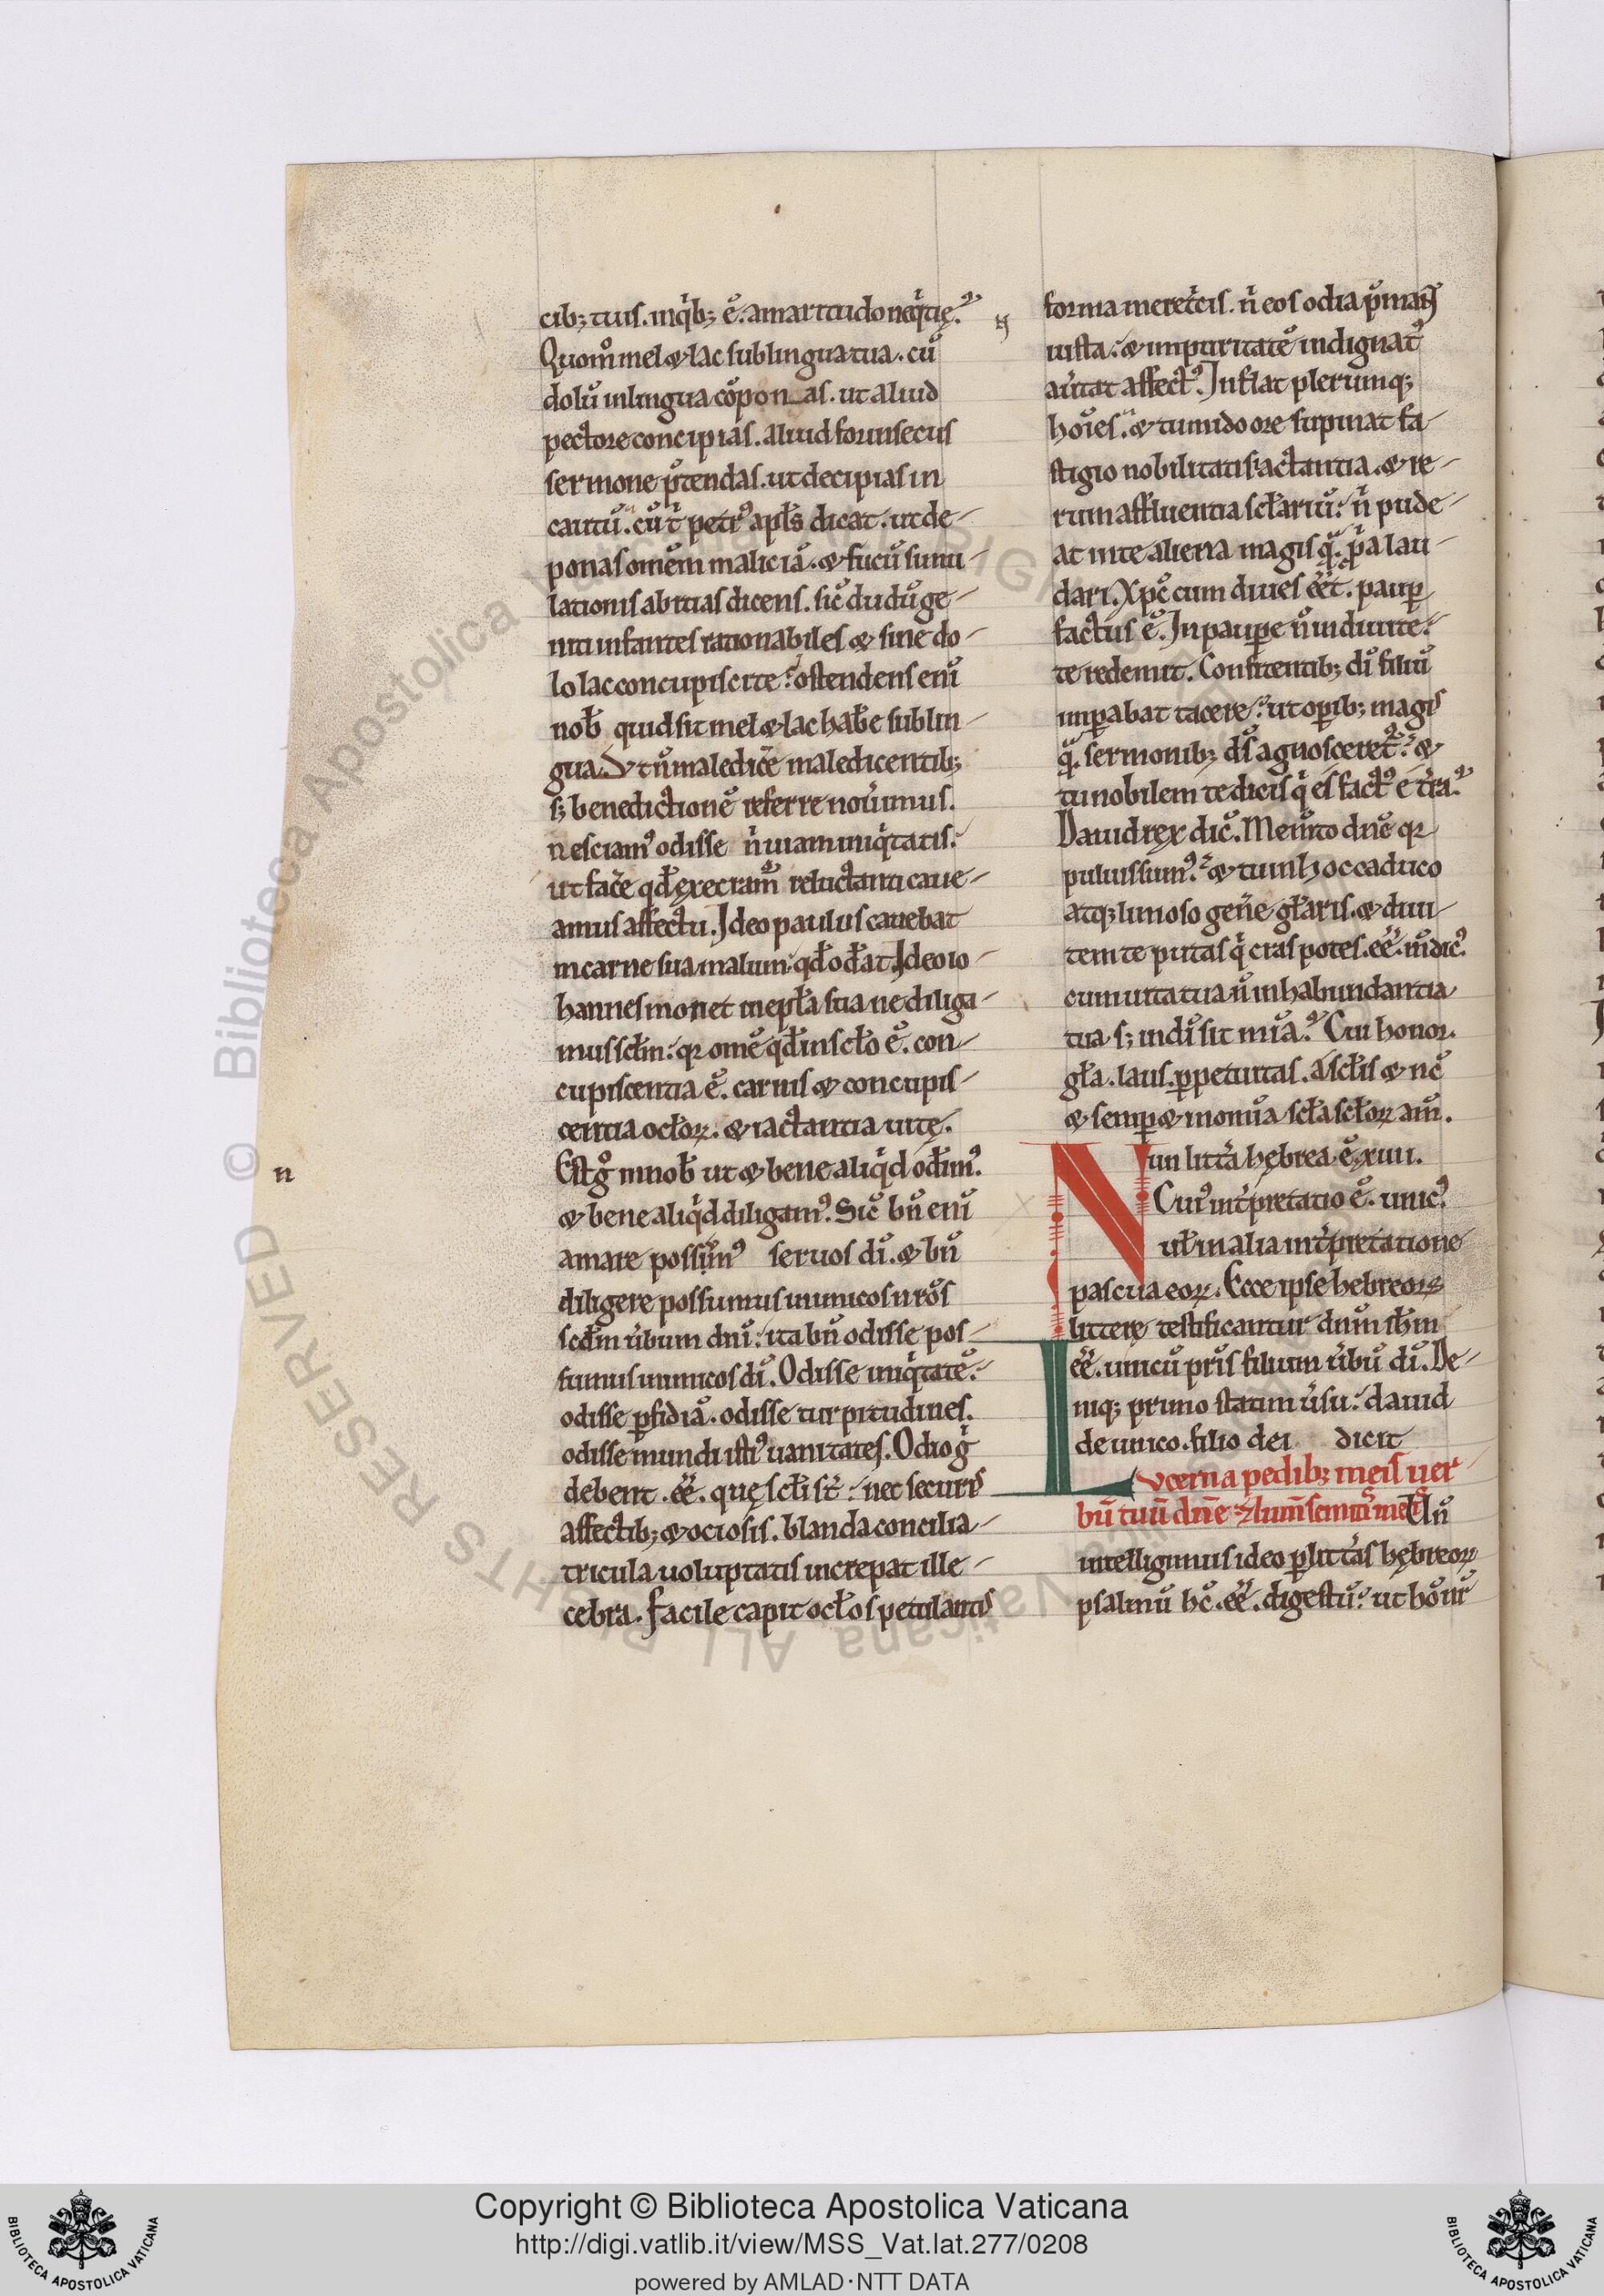 cib; tuis. in qͥb; ē. amaritudo neqͥtię.ˀ
Quom̄ mel & lac sub lingua tua. cū
dolū in lingua cōponas. ut aliud
pectore concipias. aliud forinsecus
sermone p̄tendas. ut decipias in
cautū. cū t̄ petrꝰ apl̄s dicat. ut de-
ponas om̄em maliciā. & fucū simu-
lationis abitias dicens. sic̄ dudū ge-
niti infantes rationabiles & sine do-
lo lac concupiscite. ostendens enī
nob̄ quid sit mel & lac hab̄e sub lin-
gua. Vt n̄ maledic̄e maledicentib;
s; benedictionē referre nou̓imus.
nesciamꝰ odisse n̄ uiam iniqͥtatis.
ut fac̄e qd̄ execram̄ reluctanti caue-
amus affectu. Ideo paulus cauebat
in carne sua malum. qd̄ od̄at. Ideo io-
hannes monet in epl̄a sua ne diliga-
mus scl̄m. qꝛ om̄e qd̄ in scl̄o ē. con-
cupiscentia ē. carnis & concupis-
centia ocl̄oꝝ. & iactantia uitę.
Est gͦ in nob̄ ut & bene aliqͥd od̄imꝰ.
n
& bene aliqͥd diligamꝰ. Sic̄ bn̄ enī
amare possimꝰ seruos dī. & bn̄
diligere possumus inimicos nr̄os
scd̄m u̓bum dn̄i. ita bn̄ odisse pos-
sumus inimicos dī. Odisse iniqͥtatē.
odisse ꝑfidiā. odisse turpitudines.
odisse mundi istiꝰ uanitates. Odio gͥ
debent. ēē. quę scl̄i st̄. nec securis
affectib; & ociosis. blanda concilia-
tricula uoluptatis increpat ille-
cebra. facile capit ocl̄os petulantis
forma meret̓cis. n̄ eos odia p̄mans
iusta. & impuritatē indignatꝰ
au̓tat affectꝰ. Inflat plerunq;
hoīes. & tumido ore supinat fa-
stigio nobilitatis actantia. & re-
rum affluentia scl̄ariū. n̄ pude-
at in te aliena magis qͣ. ꝓpͥa lau-
dari. Xpc̄ cum diues ēēt. pauꝑ
factus ē. In pauꝑe n̄ in diuite.
te redemit. Confitentib; dī filiū
imꝑabat tacere. ut oꝑib; magis
qͣ. sermonib; ds̄ agnosceretꝰ. &
tu nobilem te dicis qͥ es factꝰ e t̓ra.ˀ
Dauid rex dic̄. Mem̄to dn̄e qꝛ
puluis sumꝰ. & tu in hoc caduco
atq; limoso gen̄e gl̄aris. & diui-
tem te putas qͥ cras potes. ēē. m̄dicꝰ.
cum uita tua n̄ in habundantia
tua s; in dī sit mīa.ˀ Cui honor.
gl̄a. laus. ꝑpetuitas. a scl̄is & nc̄
& semꝑ & in om̄ia scl̄a scl̄oꝝ am̄.
Nun litt̓a hębrea. ē. xiiii.
Cuiꝰ int̓pretatio ē. unicꝰ
ul̄ in alia int̓pretatione
pascua eoꝝ. Ecce ipse hebreoꝝ
litterę testificantur dn̄m ih̄m
ēē. unicū pr̄is filium u̓bū dī. De-
niq; primo statim u̓su. dauid
de unico. filio dei dicit
Lvcerna pedib; meis uer
bū tuū dn̄e & lum̄ semitis meis. Vn̄
intelligimus ideo ꝑ litt̓as hębreoꝝ
psalmū hc̄. ēē. digestū. ut homī